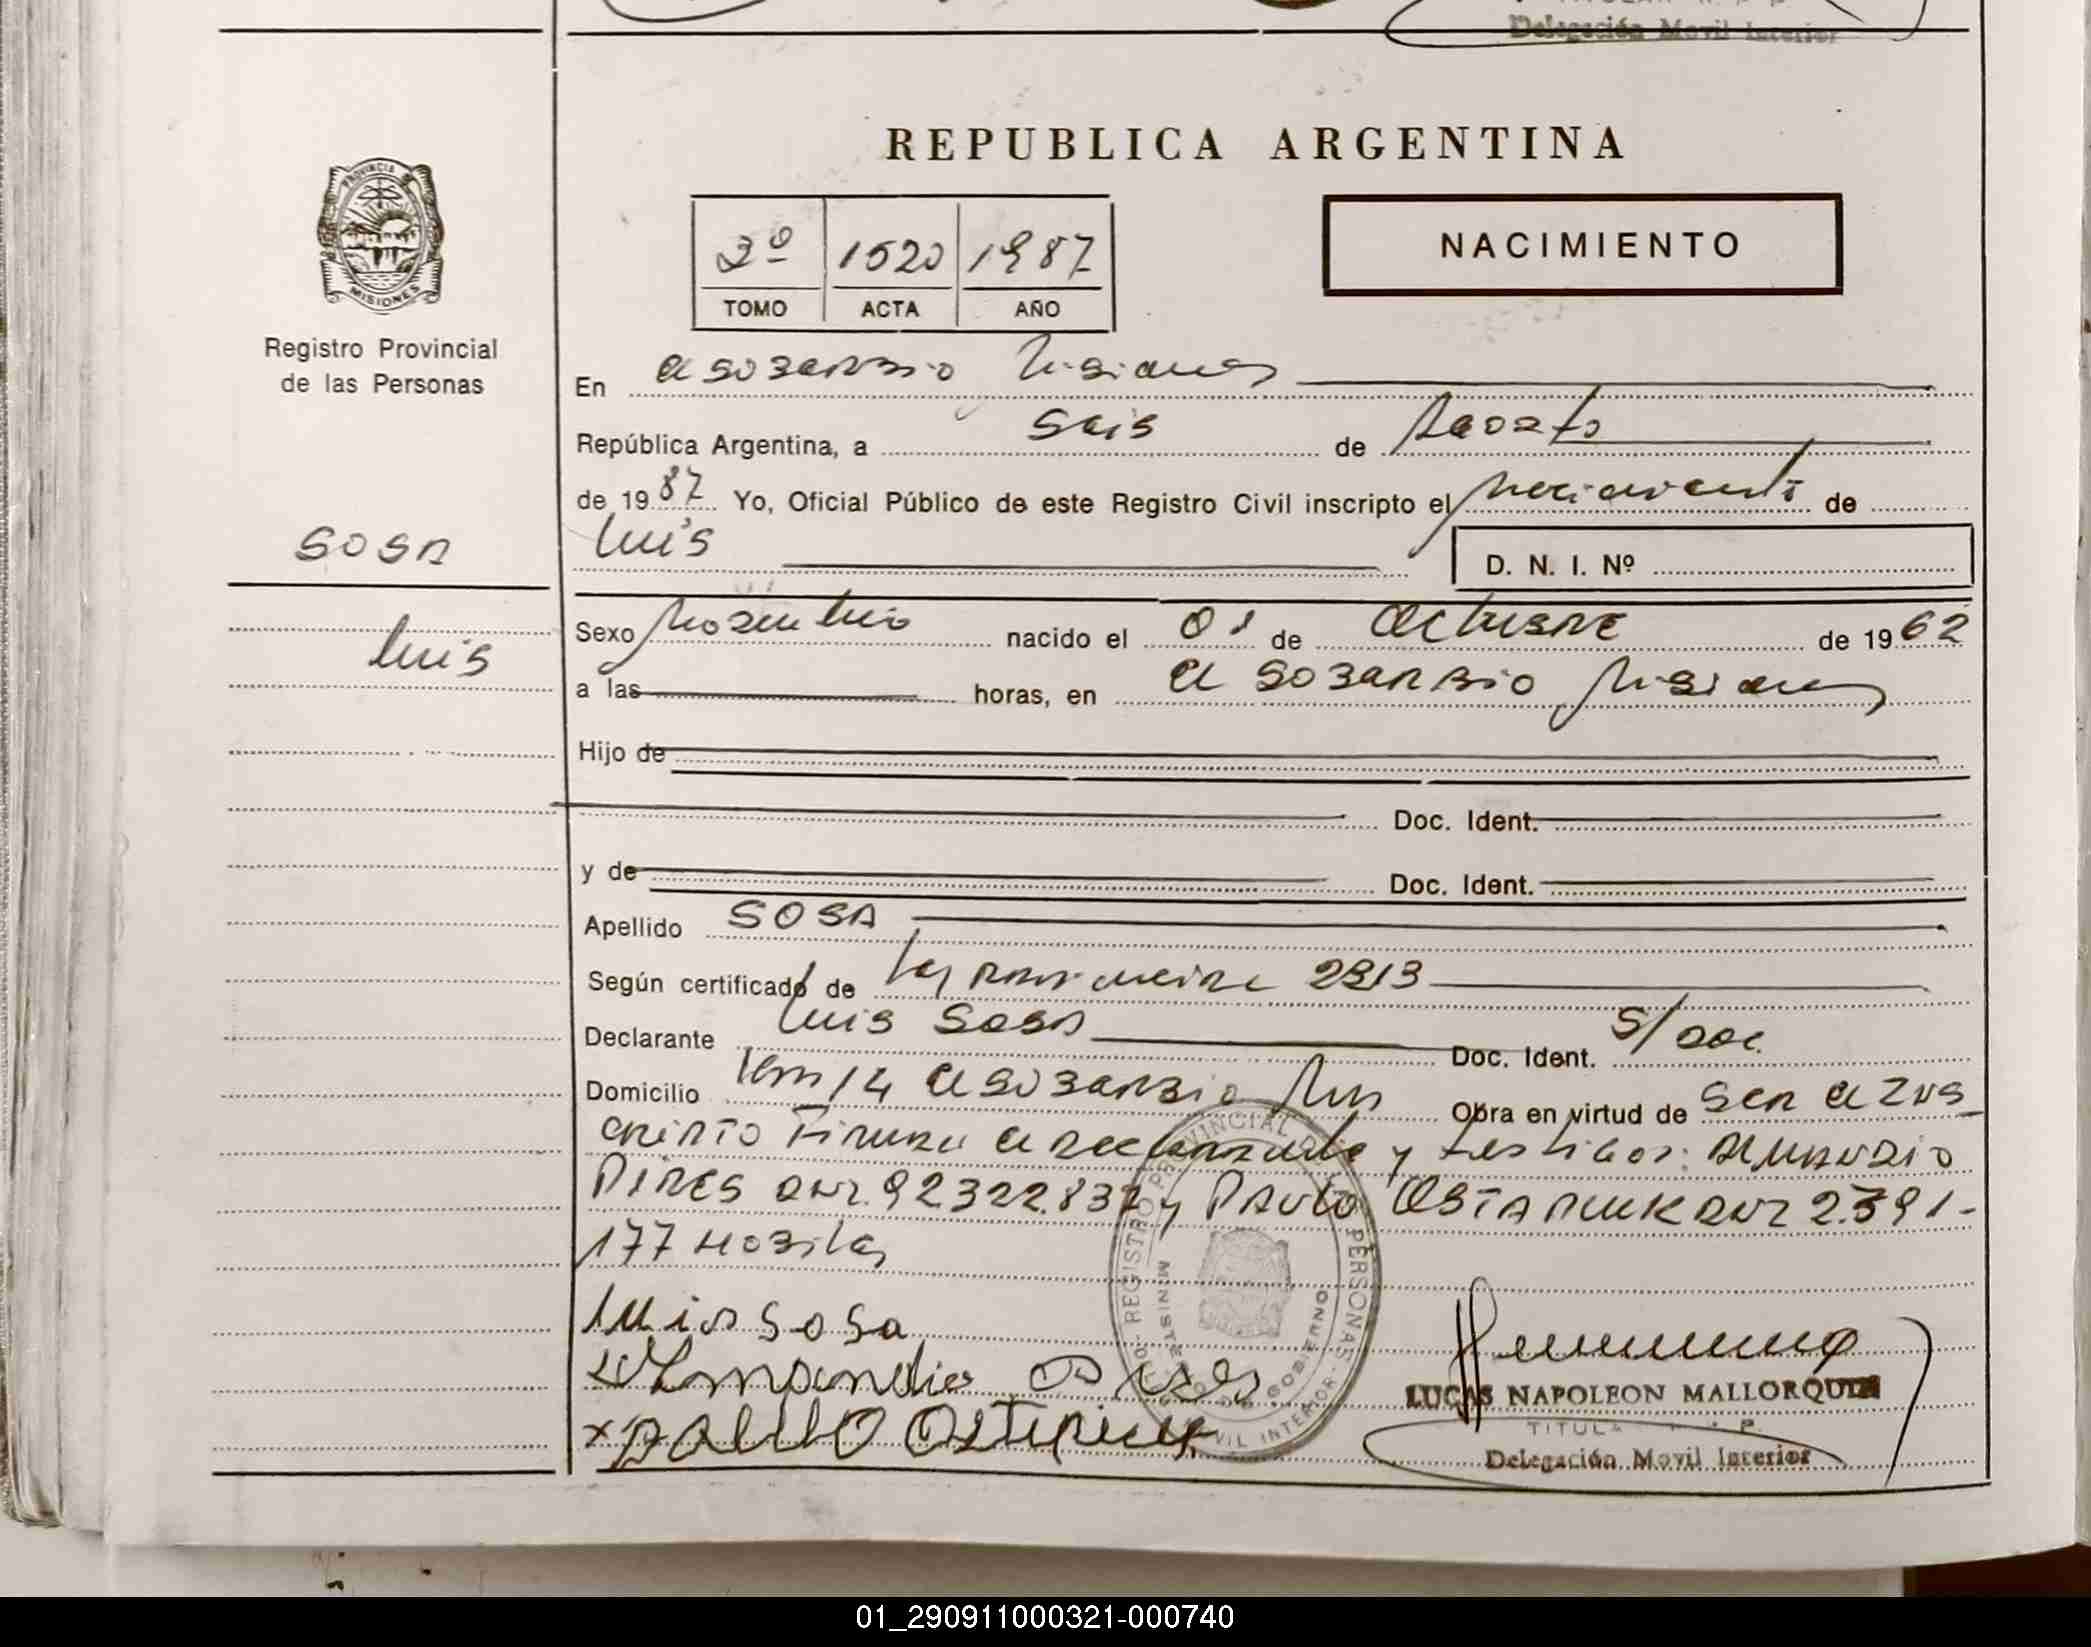 Delegación Movil Interior
REPUBLICA ARGENTINA
PROVINCIA DE
MISIONES
Registro Provincial
de las Personas
NACIMIENTO
1520 1987
TOMO ACTA AÑO
En el soberbio Misiones
República Argentina, a seis de Agosto
de 1987 Yo, Oficial Público de este Registro Civil inscripto el nacimiento de
SOSA
Luis
D. N. I. Nº
Luis
Sexo Masculino nacido el 01 de Octubre de 1962
a las horas, en el soberbio Misiones
Hijo de
Doc. Ident.
y de
Doc. Ident.
Apellido SOSA
Según certificado de Ley 2313
Declarante Luis Sosa Doc. Ident. S/Doc.
Domicilio Km 14 el soberbio Mns Obra en virtud de ser el ins
cripto Firman el declarante y testigos:
PIRES DNI. 92322.837 y PAULO DNI 2.391-
177
Luis Sosa
LUCAS NAPOLEON MALLORQUIN
TITULAR R. P. P.
Delegación Movil Interior
REGISTRO PROVINCIAL DE LAS PERSONAS
MINISTERIO DE GOBIERNO
01_290911000321-000740